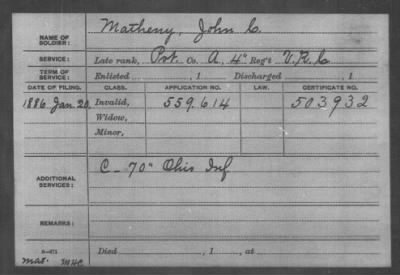 NAME OF SOLDIER: Matheny, John C.
SERVICE: Late rank, Pvt. Co. A, 4" Reg't V.R.C
TERM OF SERVICE: Enlisted , 1 Discharged , 1
DATE OF FILING. CLASS. APPLICATION NO. LAW. CERTIFICATE NO.
1886 Jan. 20 Invalid, 559.614 503932
Widow,
Minor,
ADDITIONAL SERVICES: C - 70" Ohio Inf
REMARKS:
Died , 1 , at